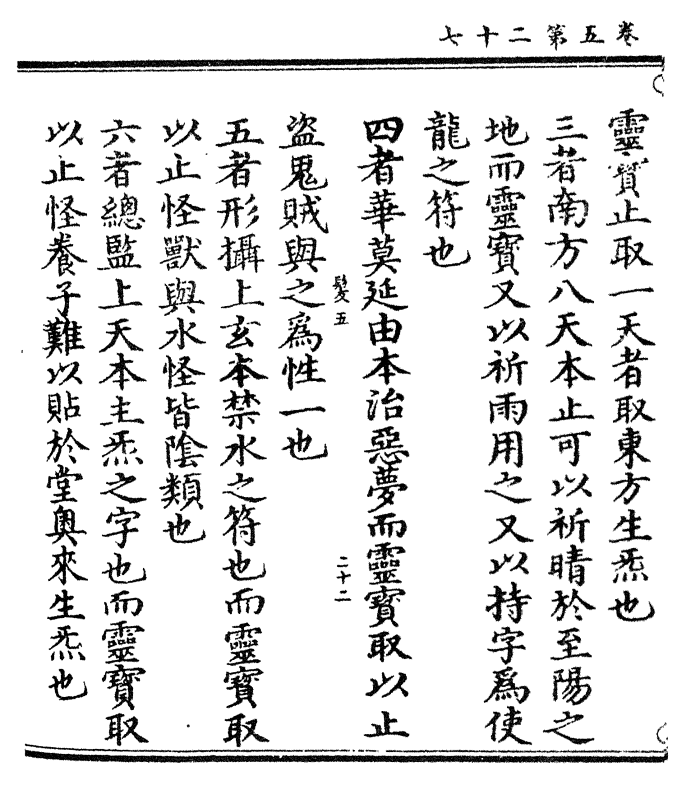 卷五第二十七
靈寶止取一天者取東方生炁也
三者南方八天本止可以祈晴於至陽之
地而靈寶又以祈雨用之又以持字爲使
龍之符也
四者華莫延由本治惡夢而靈寶取以止
髮五
二十二
盜鬼賊與之爲性一也
五者形攝上玄本禁水之符也而靈寶取
以止怪獸與水怪皆陰類也
六者總監上天本主炁之字也而靈寶取
以止怪養子難以貼於堂奧來生炁也